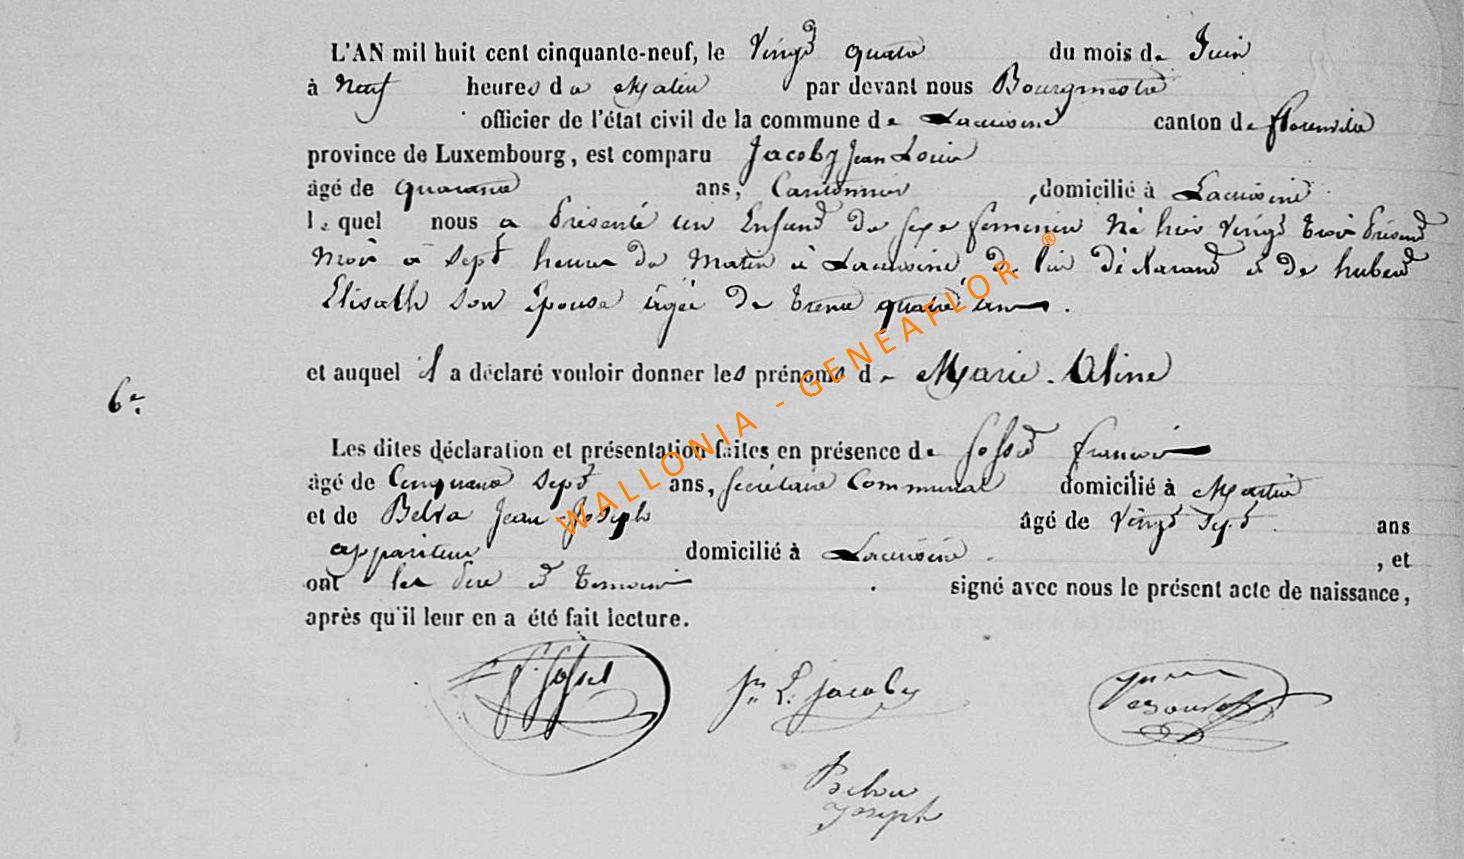 L'AN mil huit cent cinquante-neuf, le Vingt quatre du mois de Juin
à Neuf heures du Matin par devant nous Bourgmestre
officier de l'état civil de la commune de Lacuisine canton de florenville
province de Luxembourg, est comparu Jacoby Jean Louis
âgé de quarante ans, Cantonnier, domicilié à Lacuisine
lequel nous a présenté un Enfant du sexe féminin Né hier vingt trois présent
Mois à sept heures du Matin à Lacuisine, de lui déclarant et de hubert
Elisabth son épouse âgée de trente quatre ans.
et auquel il a déclaré vouloir donner les prénoms de Marie-Aline
6e.
Les dites déclaration et présentation faites en présence de Gosset françois
âgé de Cinquante sept ans, secrétaire Communal domicilié à Martué
et de Jean Joseph âgé de Vingt sept ans
appariteur domicilié à Lacuisine, et
ont les père et témoins signé avec nous le présent acte de naissance,
après qu'il leur en a été fait lecture.
F. Gosset Jn L. Jacoby
Joseph
WALLONIA - GENEAFLOR ®